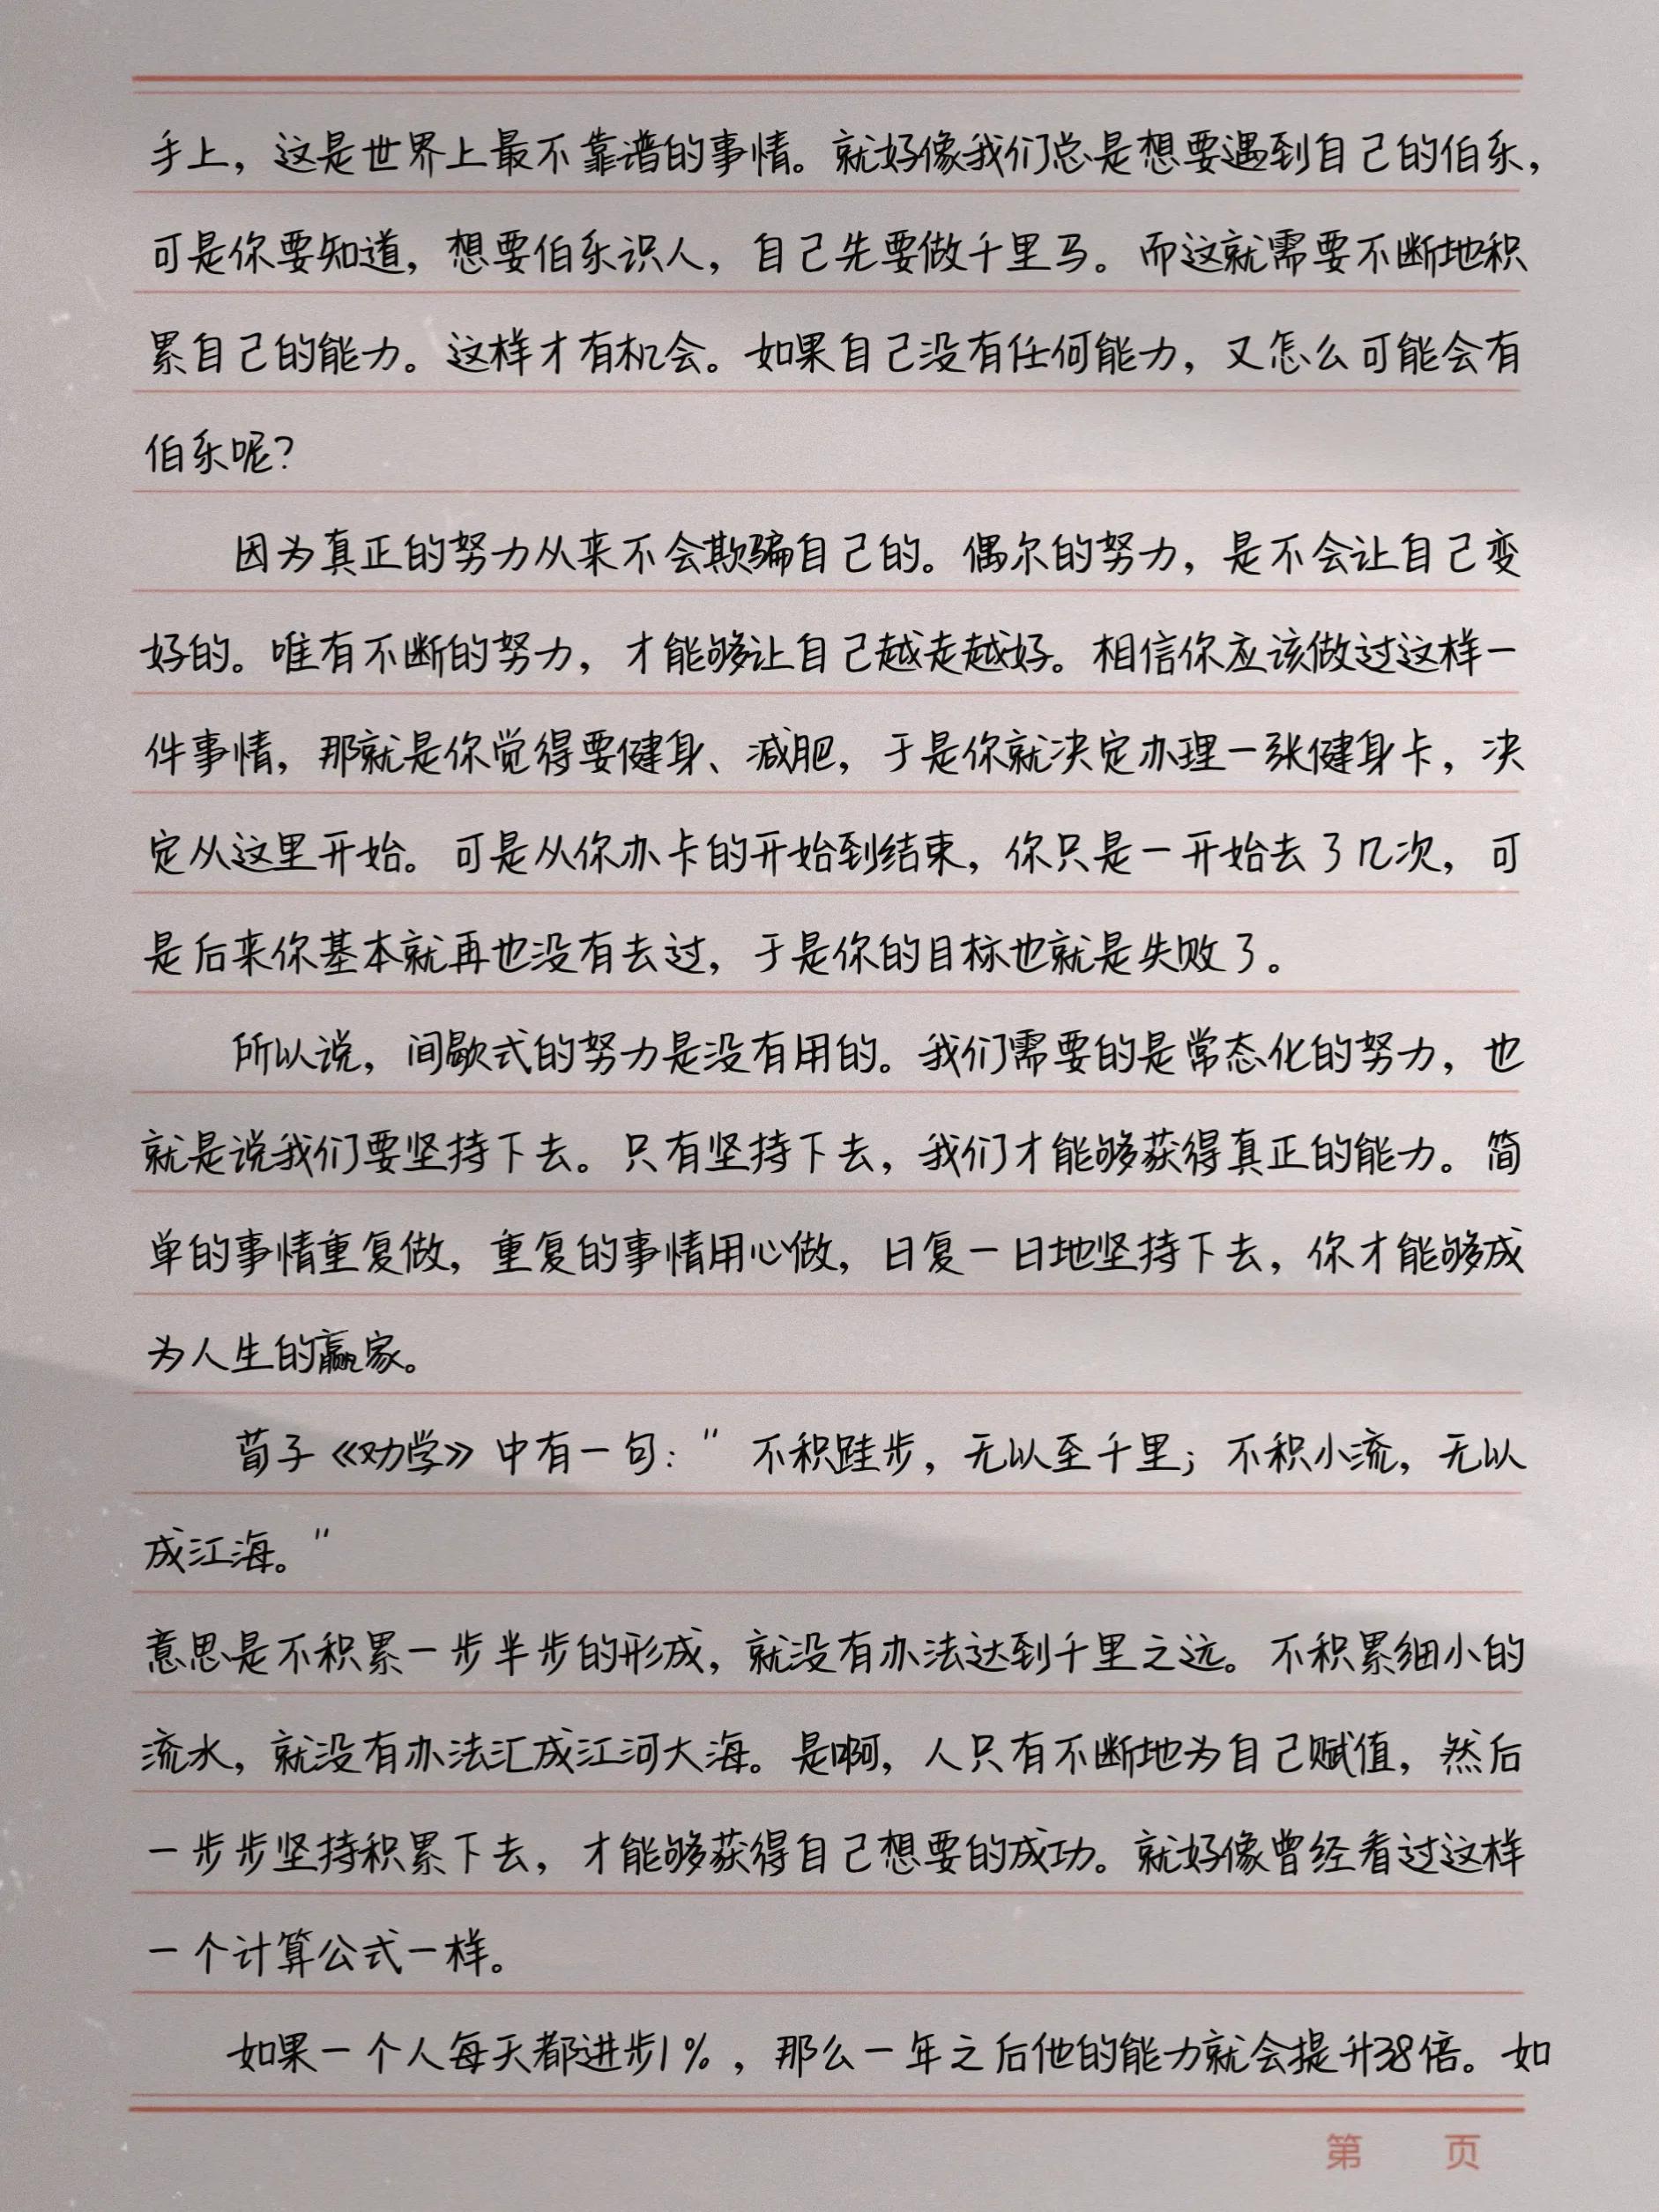 手上，这是世界上最不靠谱的事情。就好像我们总是想要遇到自己的伯乐，
可是你要知道，想要伯乐识人，自己先要做千里马。而这就需要不断地积
累自己的能力。这样才有机会。如果自己没有任何能力，又怎么可能会有
伯乐呢？
因为真正的努力从来不会欺骗自己的。偶尔的努力，是不会让自己变
好的。唯有不断的努力，才能够让自己越走越好。相信你应该做过这样一
件事情，那就是你觉得要健身、减肥，于是你就决定办理一张健身卡，决
定从这里开始。可是从你办卡的开始到结束，你只是一开始去了几次，可
是后来你基本就再也没有去过，于是你的目标也就是失败了。
所以说，间歇式的努力是没有用的。我们需要的是常态化的努力，也
就是说我们要坚持下去。只有坚持下去，我们才能够获得真正的能力。简
单的事情重复做，重复的事情用心做，日复一日地坚持下去，你才能够成
为人生的赢家。
荀子《劝学》中有一句："不积跬步，无以至千里；不积小流，无以
成江海。"
意思是不积累一步半步的形成，就没有办法达到千里之远。不积累细小的
流水，就没有办法汇成江河大海。是啊，人只有不断地为自己赋值，然后
一步步坚持积累下去，才能够获得自己想要的成功。就好像曾经看过这样
一个计算公式一样。
如果一个人每天都进步1%，那么一年之后他的能力就会提升38倍。如
第 页